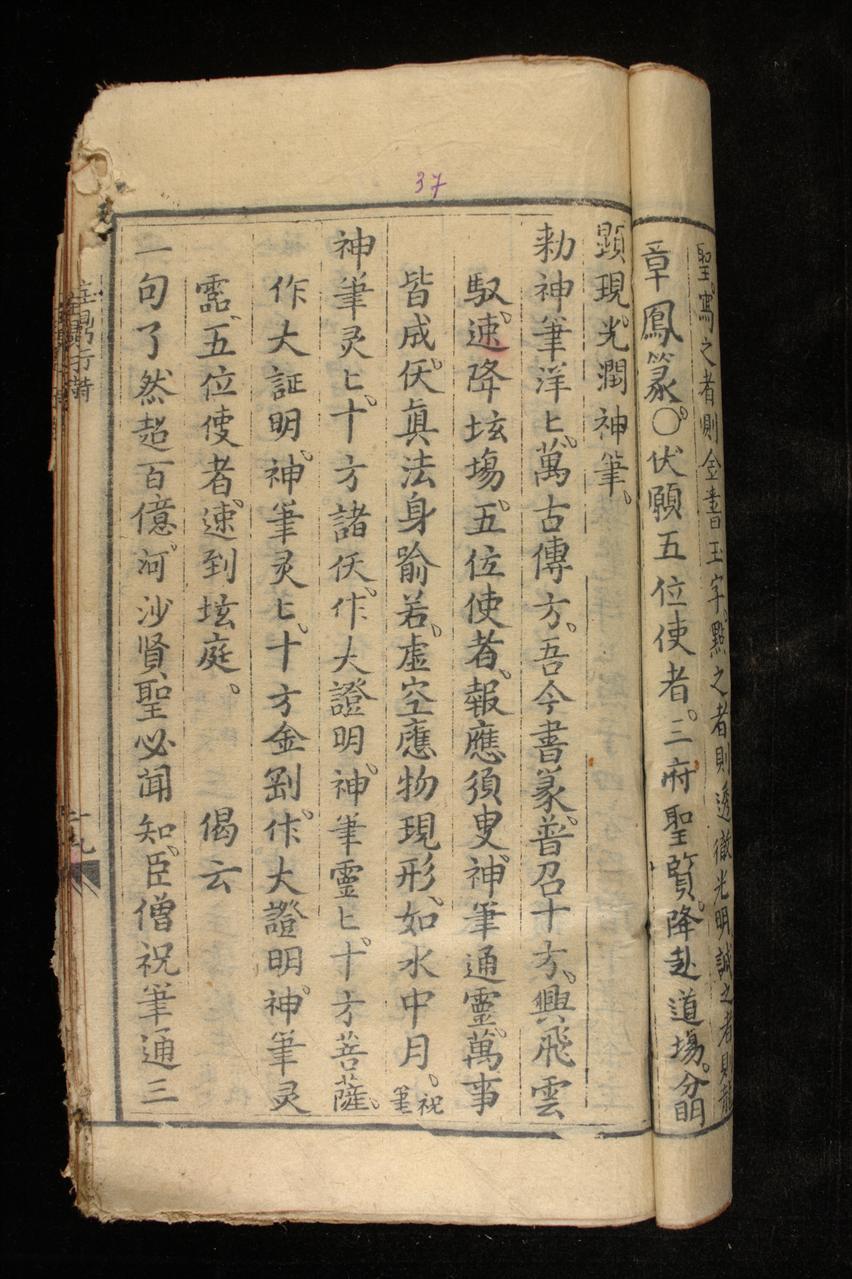 聖。寫之者則金書玉字。點之者則透徹光明誠之者則龍
章鳳篆。○伏願五位使者。三府聖賢。降赴道場。分明
37
顕現。光潤神筆。
勑神筆洋〻。萬古傳方。吾今書篆。普召十方。興飛雲
馭。速降坛場。五位使者。報應須叟。神筆通靈。萬事
皆成。仸真法身喻若。虛空應物現形。如水中月。祝筆
神筆灵〻。十方諸仸。作大證明。神筆靈〻。十方菩薩。
作大証明。神筆灵〻。十方金剛。作大證明。神筆灵
霑。五位使者。速到坛庭。偈云
一句了然超百億。河沙賢聖必聞知。臣僧祝筆通三
十九